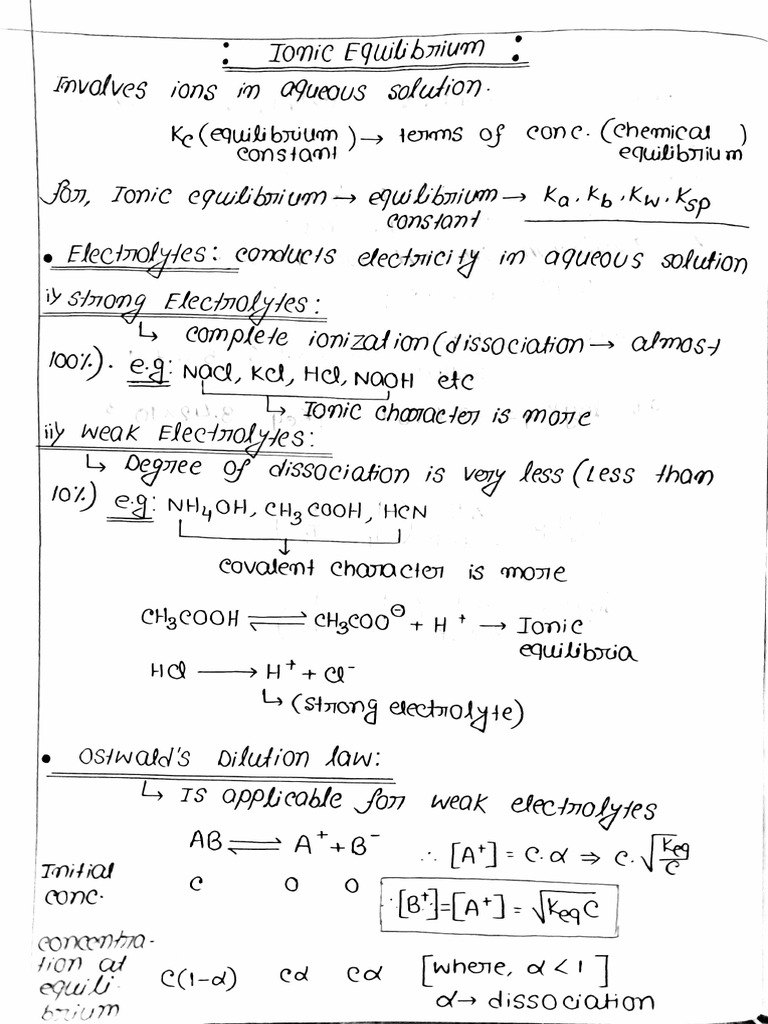 : Ionic Equilibrium :
Involves ions in aqueous solution.
Kc (equilibrium constant) → terms of conc. (chemical equilibrium)
for, Ionic equilibrium → equilibrium constant → Ka, Kb, Kw, Ksp
• Electrolytes: conducts electricity in aqueous solution
i) Strong Electrolytes:
↳ complete ionization (dissociation → almost
100%). e.g: NaCl, KCl, HCl, NaOH etc
↳ Ionic character is more
ii) Weak Electrolytes:
↳ Degree of dissociation is very less (Less than
10%) e.g: NH₄OH, CH₃COOH, HCN
covalent character is more
CH₃COOH ⇌ CH₃COO⊖ + H⁺ → Ionic equilibria
HCl ⟶ H⁺ + Cl⁻
↳ (strong electrolyte)
• Ostwald's Dilution law:
↳ Is applicable for weak electrolytes
AB ⇌ A⁺ + B⁻ ∴ [A⁺] = C.α ⇒ C.√(Keq/C)
Initial conc. C 0 0
[B⁺]=[A⁺] = √(KeqC)
concentration at equilibrium C(1-α) Cα Cα [where, α < 1]
α → dissociation